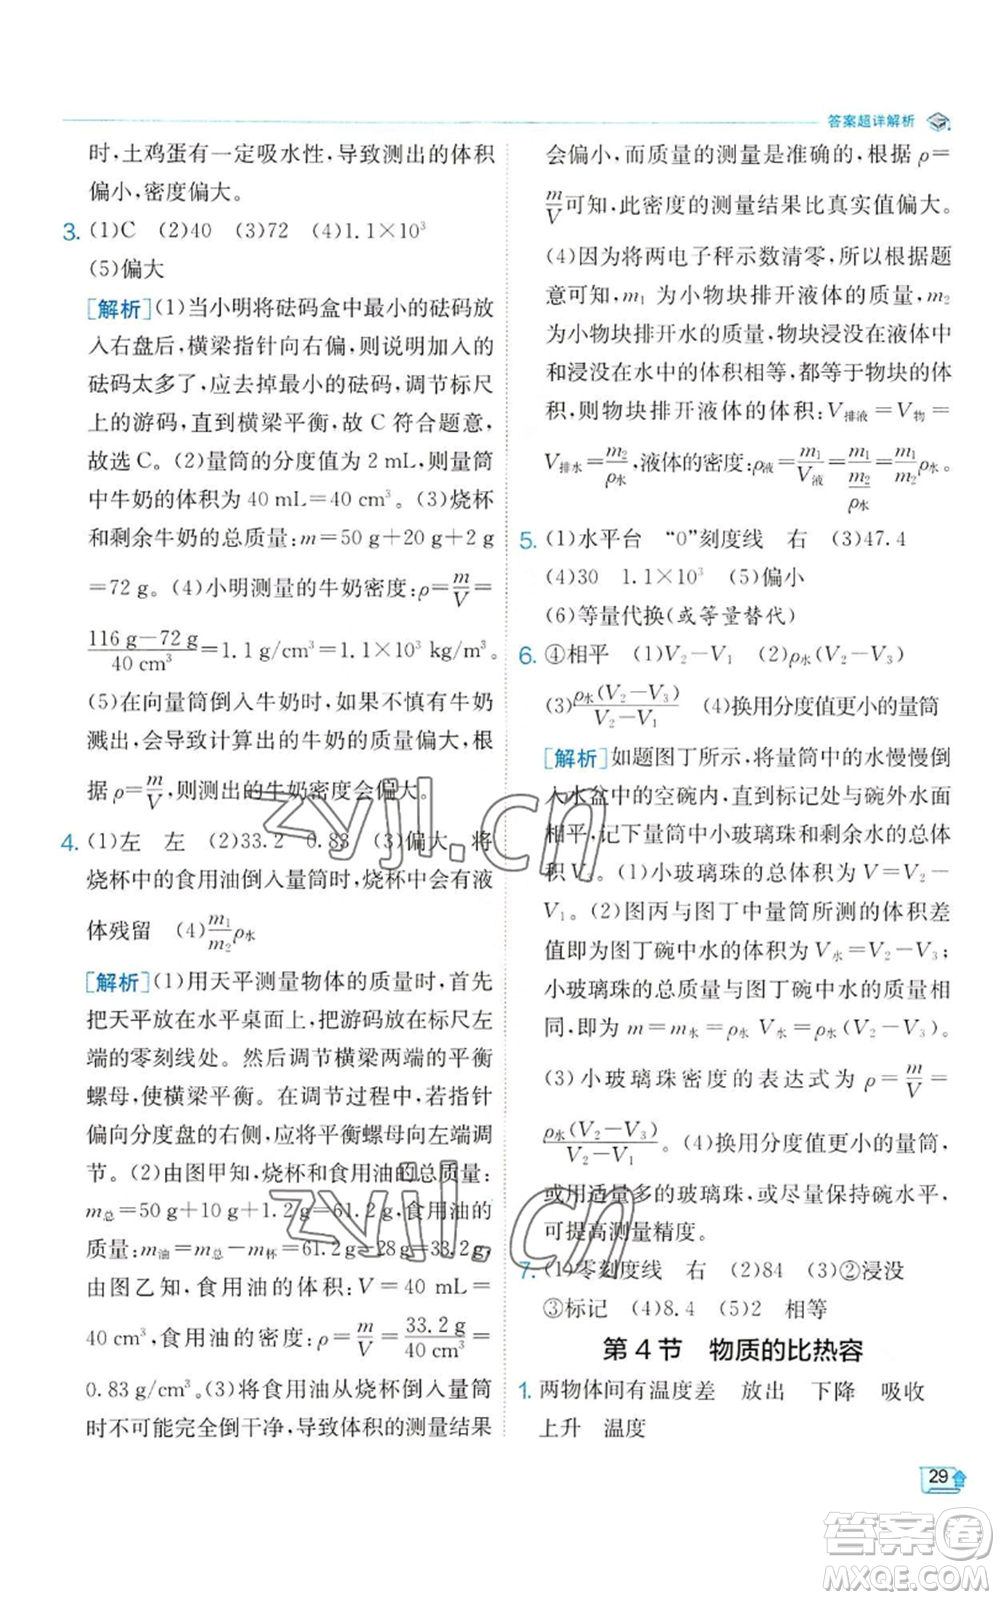 答案超详解析
时,土鸡蛋有一定吸水性,导致测出的体积
偏小,密度偏大。
3. (1)C (2)40 (3)72 (4)1.1×10³
(5)偏大
[解析](1)当小明将砝码盒中最小的砝码放
入右盘后,横梁指针向右偏,则说明所加的
砝码太多了,应去掉最小的砝码,调节标尺
上的游码,直到横梁平衡,故 C 符合题意,
故选 C。(2)量筒的分度值为 2 mL,量筒
中牛奶的体积为 40 mL=40 cm³。(3)烧杯
和剩余牛奶的总质量:m=50 g+20 g+2 g
=72 g。(4)小明测量的牛奶密度:ρ=m/V=
(116 g−72 g)/(40 cm³)=1.1 g/cm³=1.1×10³ kg/m³。
(5)在向量筒倒入牛奶时,如果不慎有牛奶
溅出,会导致计算出的牛奶的质量偏大,根
据 ρ=m/V,则测出的牛奶密度会偏大。
4. (1)左 左 (2)33.2 0.83 (3)偏大 将
烧杯中的食用油倒入量筒时,烧杯中会有液
体残留 (4)m₁/m₂ρ水
[解析](1)用天平测量物体的质量时,首先
把天平放在水平桌面上,把游码放在标尺左
端的零刻线处。然后调节横梁两端的平衡
螺母,使横梁平衡。在调节过程中,若指针
偏向分度盘的右侧,应将平衡螺母向左端调
节。(2)由图甲知,烧杯和食用油的总质量:
m总=50 g+10 g+1.2 g=61.2 g,食用油的
质量:m油=m总−m杯=61.2 g−28 g=33.2 g,
由图乙知,食用油的体积:V=40 mL=
40 cm³,食用油的密度:ρ=m/V=33.2 g/40 cm³=
0.83 g/cm³。(3)将食用油从烧杯倒入量筒
时不可能完全倒干净,导致体积的测量结果
会偏小,而质量的测量是准确的,根据 ρ=
m/V可知,此密度的测量结果比真实值偏大。
(4)因为将两电子秤示数清零,所以根据题
意可知,m₁ 为小物块排开液体的质量,m₂
为小物块排开水的质量,物块浸没在液体中
和浸没在水中的体积相等,都等于物块的体
积,则物块排开液体的体积:V排液=V物=
V排水=m₂/ρ水,液体的密度:ρ液=m₁/V液=m₁/(m₂/ρ水)=m₁/m₂ρ水。
5. (1)水平台 “0”刻度线 右 (3)47.4
(4)30 1.1×10³ (5)偏小
(6)等量代换(或等量替代)
6. ④相平 (1)V₂−V₁ (2)ρ水(V₂−V₃)
(3)ρ水(V₂−V₃)/(V₂−V₁) (4)换用分度值更小的量筒
[解析]如题图丁所示,将量筒中的水慢慢倒
入水盆中的空碗内,直到标记处与碗外水面
相平,记下量筒中小玻璃珠和剩余水的总体
积 V₃。(1)小玻璃珠的总体积为 V=V₂−
V₁。(2)图丙与图丁中量筒所测的体积差
值即为图丁碗中水的体积为 V水=V₂−V₃;
小玻璃珠的总质量与图丁碗中水的质量相
同,即为 m=m水=ρ水 V水=ρ水(V₂−V₃)。
(3)小玻璃珠密度的表达式为 ρ=m/V=
ρ水(V₂−V₃)/(V₂−V₁)。(4)换用分度值更小的量筒,
或用适量多的玻璃珠,或尽量保持碗水平,
可提高测量精度。
7. (1)零刻度线 右 (2)84 (3)②浸没
③标记 (4)8.4 (5)2 相等
第 4 节 物质的比热容
1. 两物体间有温度差 放出 下降 吸收
上升 温度
29
zyjl.cn
zyjl.cn
答案卷
MXQE.COM